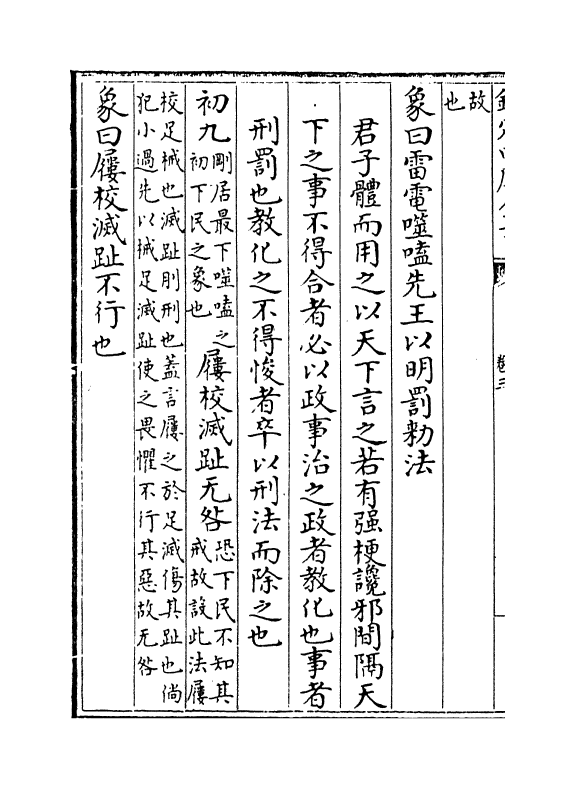 故
也
象曰雷電噬嗑先王以明罰勑法
君子體而用之以天下言之若有强梗讒邪間隔天
下之事不得合者必以政事治之政者教化也事者
刑罰也教化之不得悛者卒以刑法而除之也
初九剛居最下噬嗑之
初下民之象也屨校滅趾无咎恐下民不知其
戒故設此法屨
校足械也滅趾刖刑也蓋言屨之於足滅傷其趾也倘
犯小過先以械足滅趾使之畏懼不行其惡故无咎
象曰屨校滅趾不行也